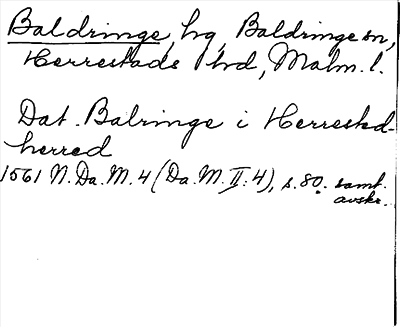 Baldringe, hg, Baldringe sn,
Herrestads hd, Malm. l.
Dat. Balringe i Herrested-
herred
1561 N. Da. M. 4 (Da. M. II: 4), s. 80. samt.
avskr.